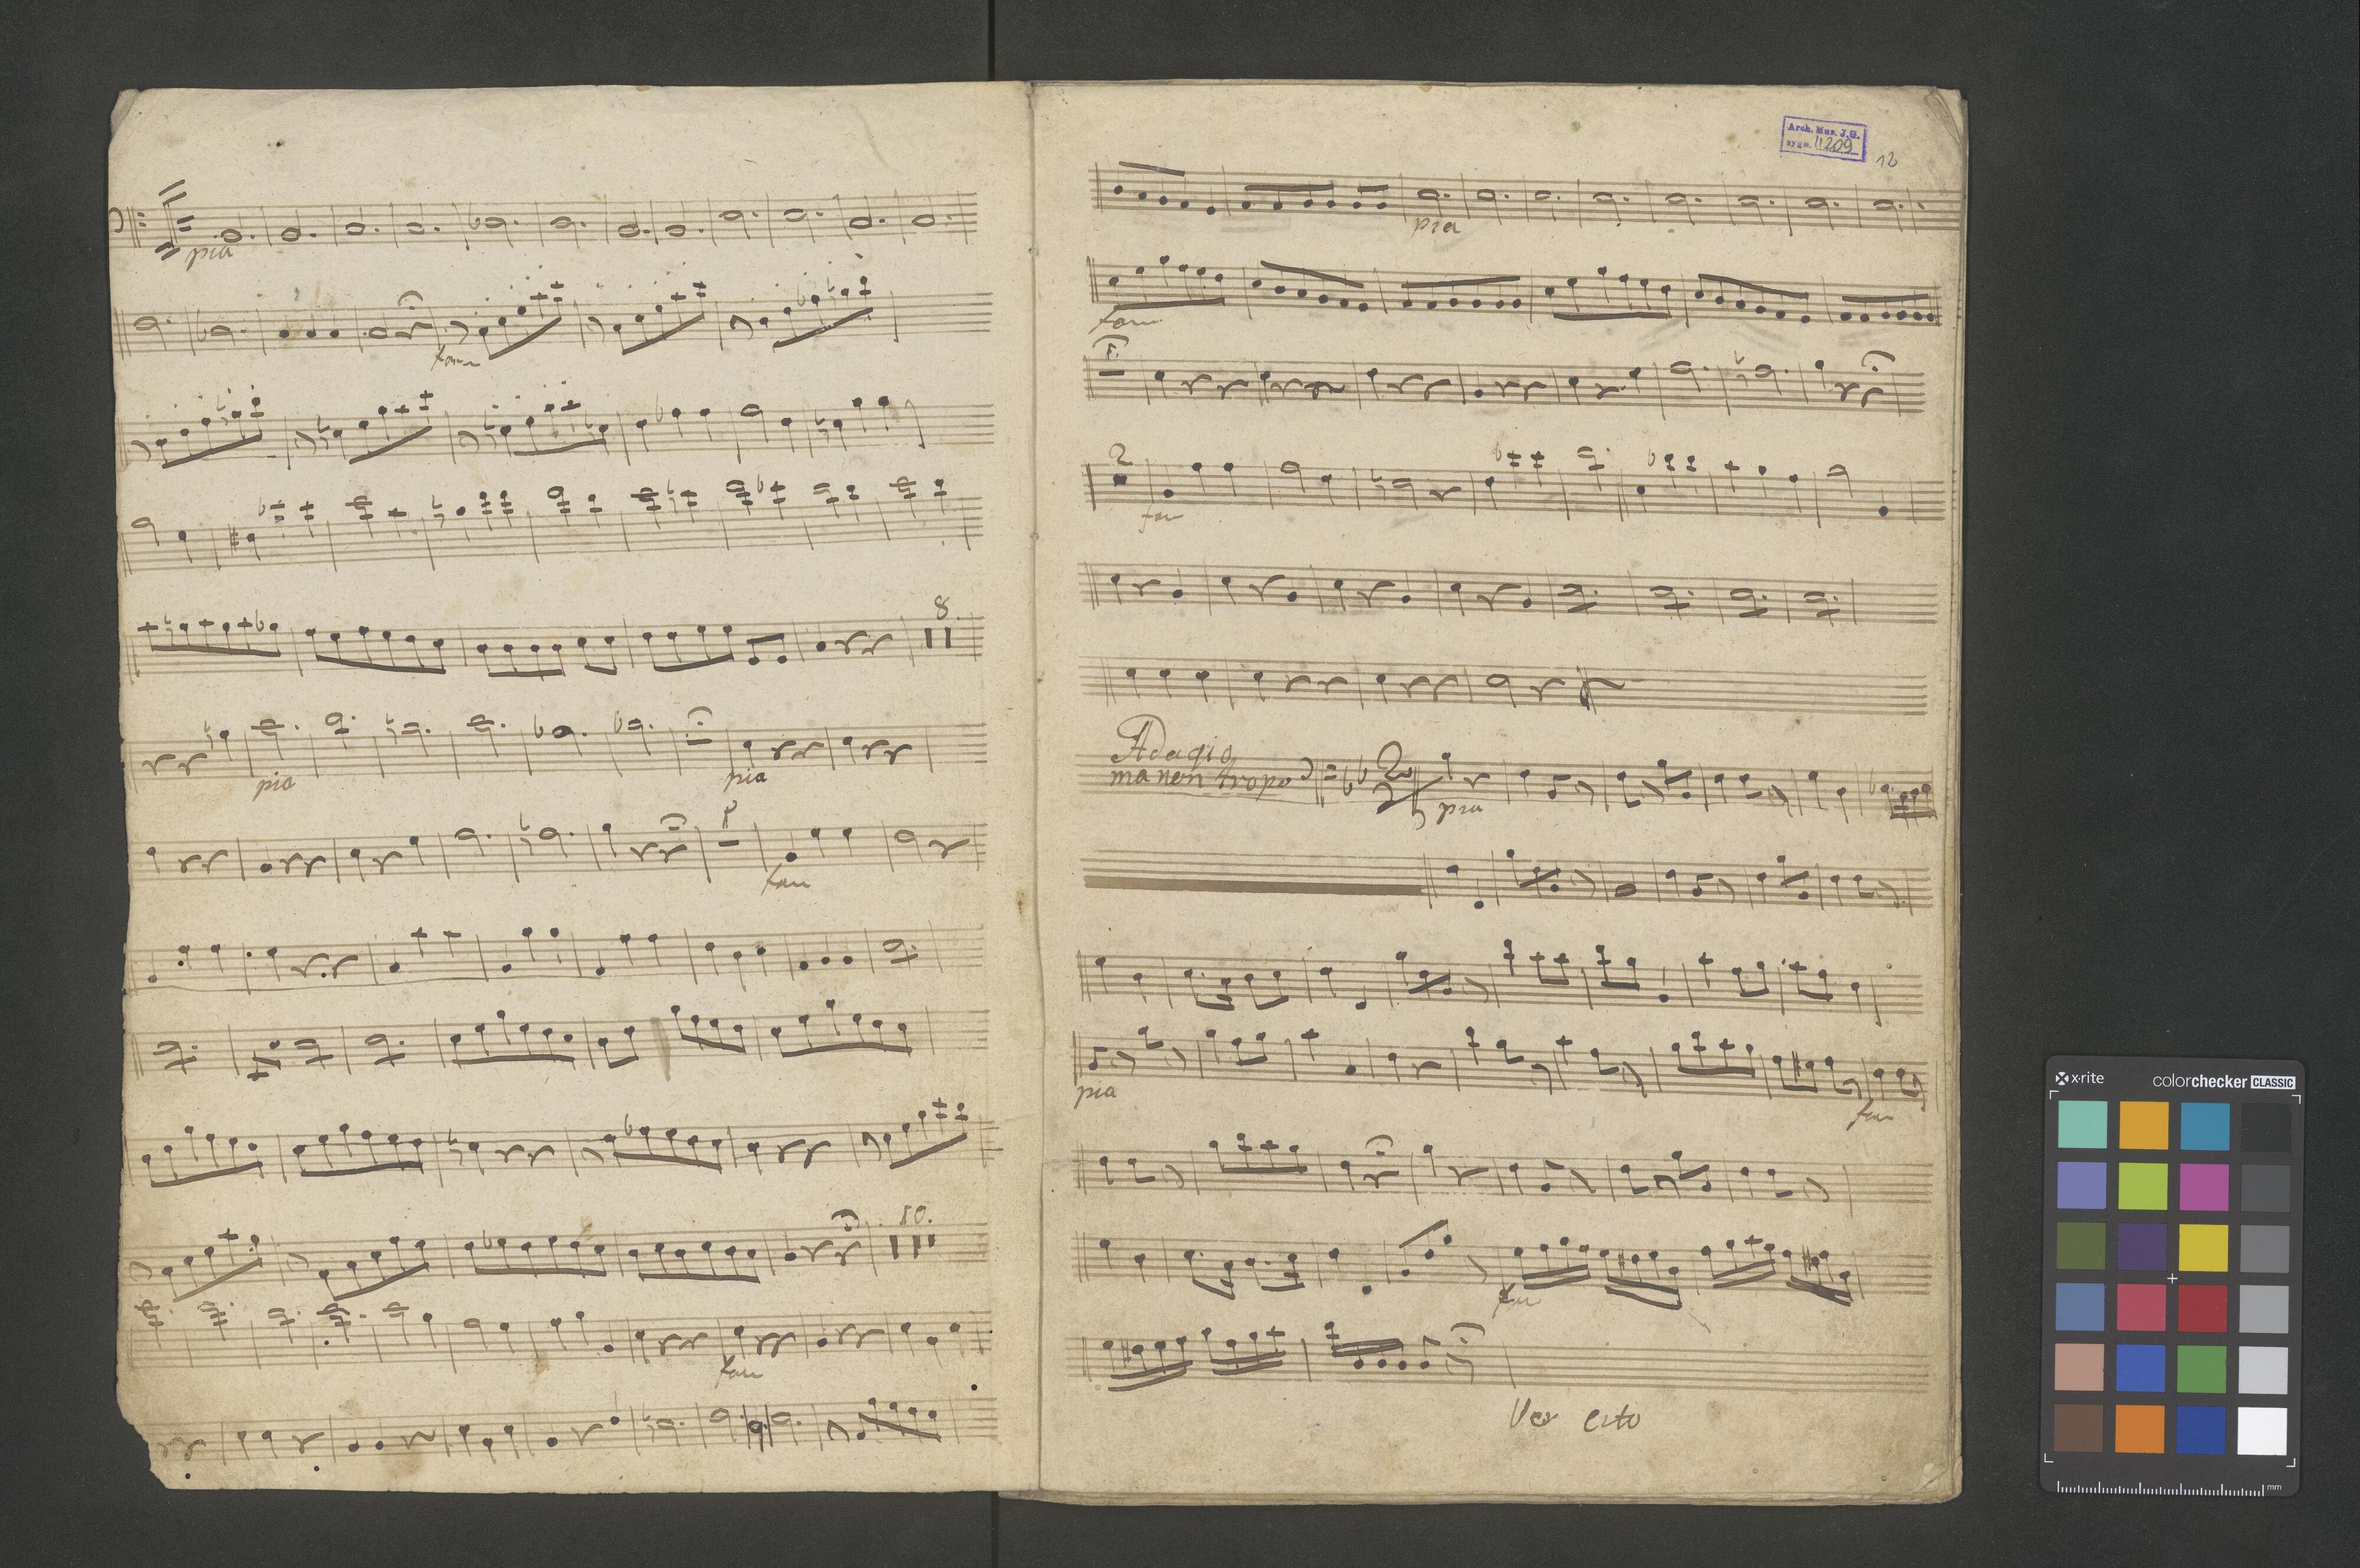 pia
fau
8
pia
pia
fau
10.
fau
Arch. Mus. J.G.
sygn. 11209
12
pia
fau
2
fau
Adagio
ma non tropo
2
4
pia
pia
fau
fau
Ver cito
x-rite
colorchecker CLASSIC
mm